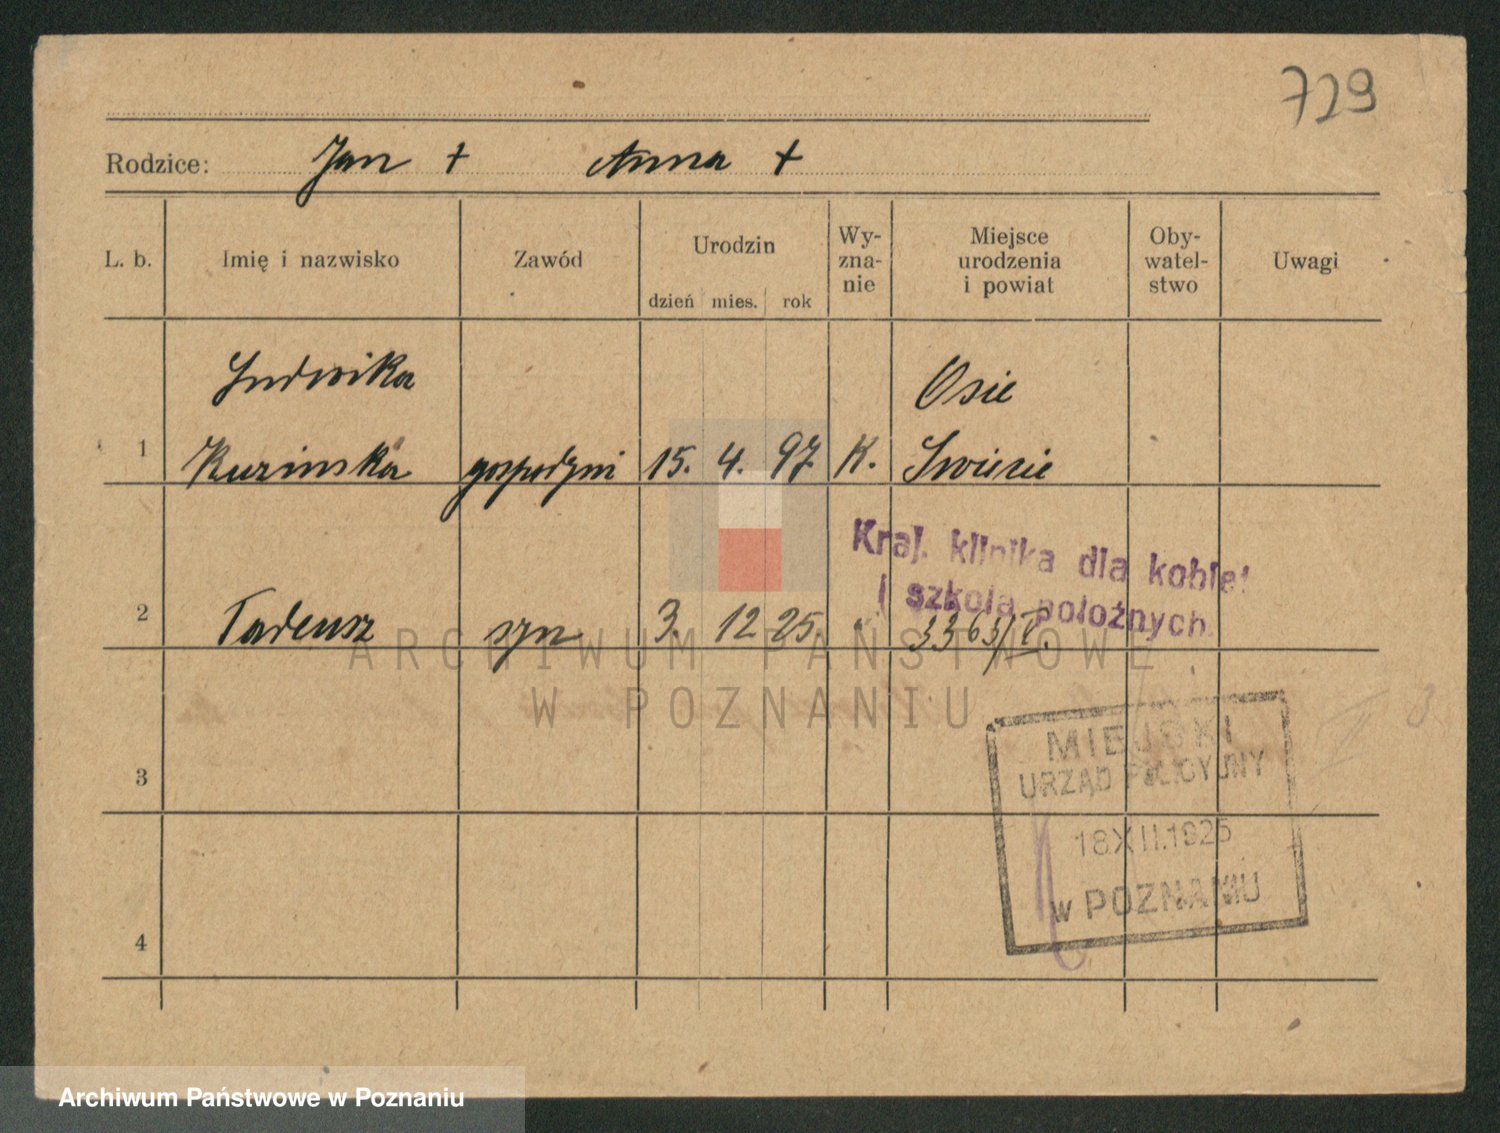 729
Rodzice: Jan + Anna +
L. b. Imię i nazwisko Zawód Urodzin dzień mies. rok Wy-zna-nie Miejsce urodzenia i powiat Oby-watel-stwo Uwagi
Ludwika Osie
1 Ruzinska gospodyni 15. 4. 97. K. Swiecie
Kraj. klinika dla kobiet
i szkoła położnych.
2 Tadeusz syn 3. 12 25. " 3363/V.
ARCHIWUM PAŃSTWOWE
W POZNANIU
MIEJSKI
URZĄD POLICYJNY
3
18.XII.1925
w POZNANIU
4
Archiwum Państwowe w Poznaniu